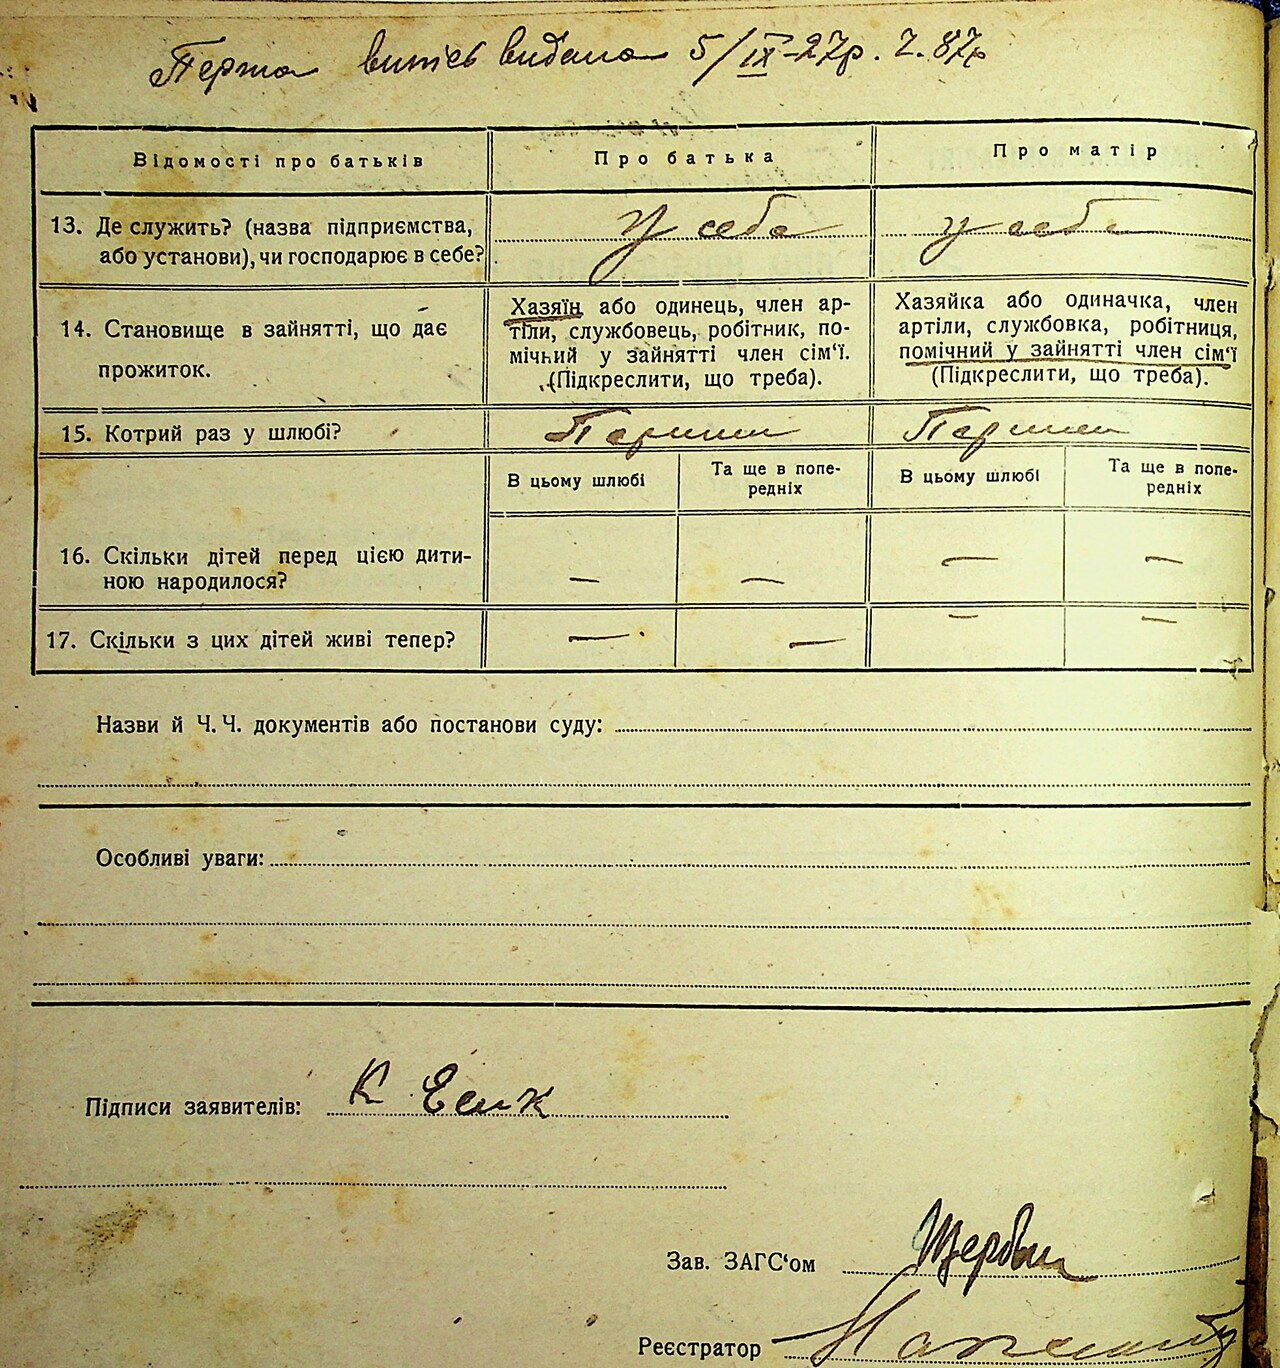 Перша витісь видана 5/IX-27р. Ч. 87р
Відомості про батьків
Про батька
Про матір
13. Де служить? (назва підприємства,
або установи), чи господарює в себе?
У себе
у себе
14. Становище в зайнятті, що дає
прожиток.
Хазяїн або одинець, член ар-
тіли, службовець, робітник, по-
мічний у зайнятті член сім‘ї.
(Підкреслити, що треба).
Хазяйка або одиначка, член
артіли, службовка, робітниця,
помічний у зайнятті член сім‘ї
(Підкреслити, що треба).
15. Котрий раз у шлюбі?
Перший
Перший
В цьому шлюбі
Та ще в попе-
редніх
В цьому шлюбі
Та ще в попе-
редніх
16. Скільки дітей перед цією дити-
ною народилося?
— — — —
17. Скільки з цих дітей живі тепер?
— — — —
Назви й Ч. Ч. документів або постанови суду:
Особливі уваги:
Підписи заявителів: К
Зав. ЗАГС‘ом
Реєстратор